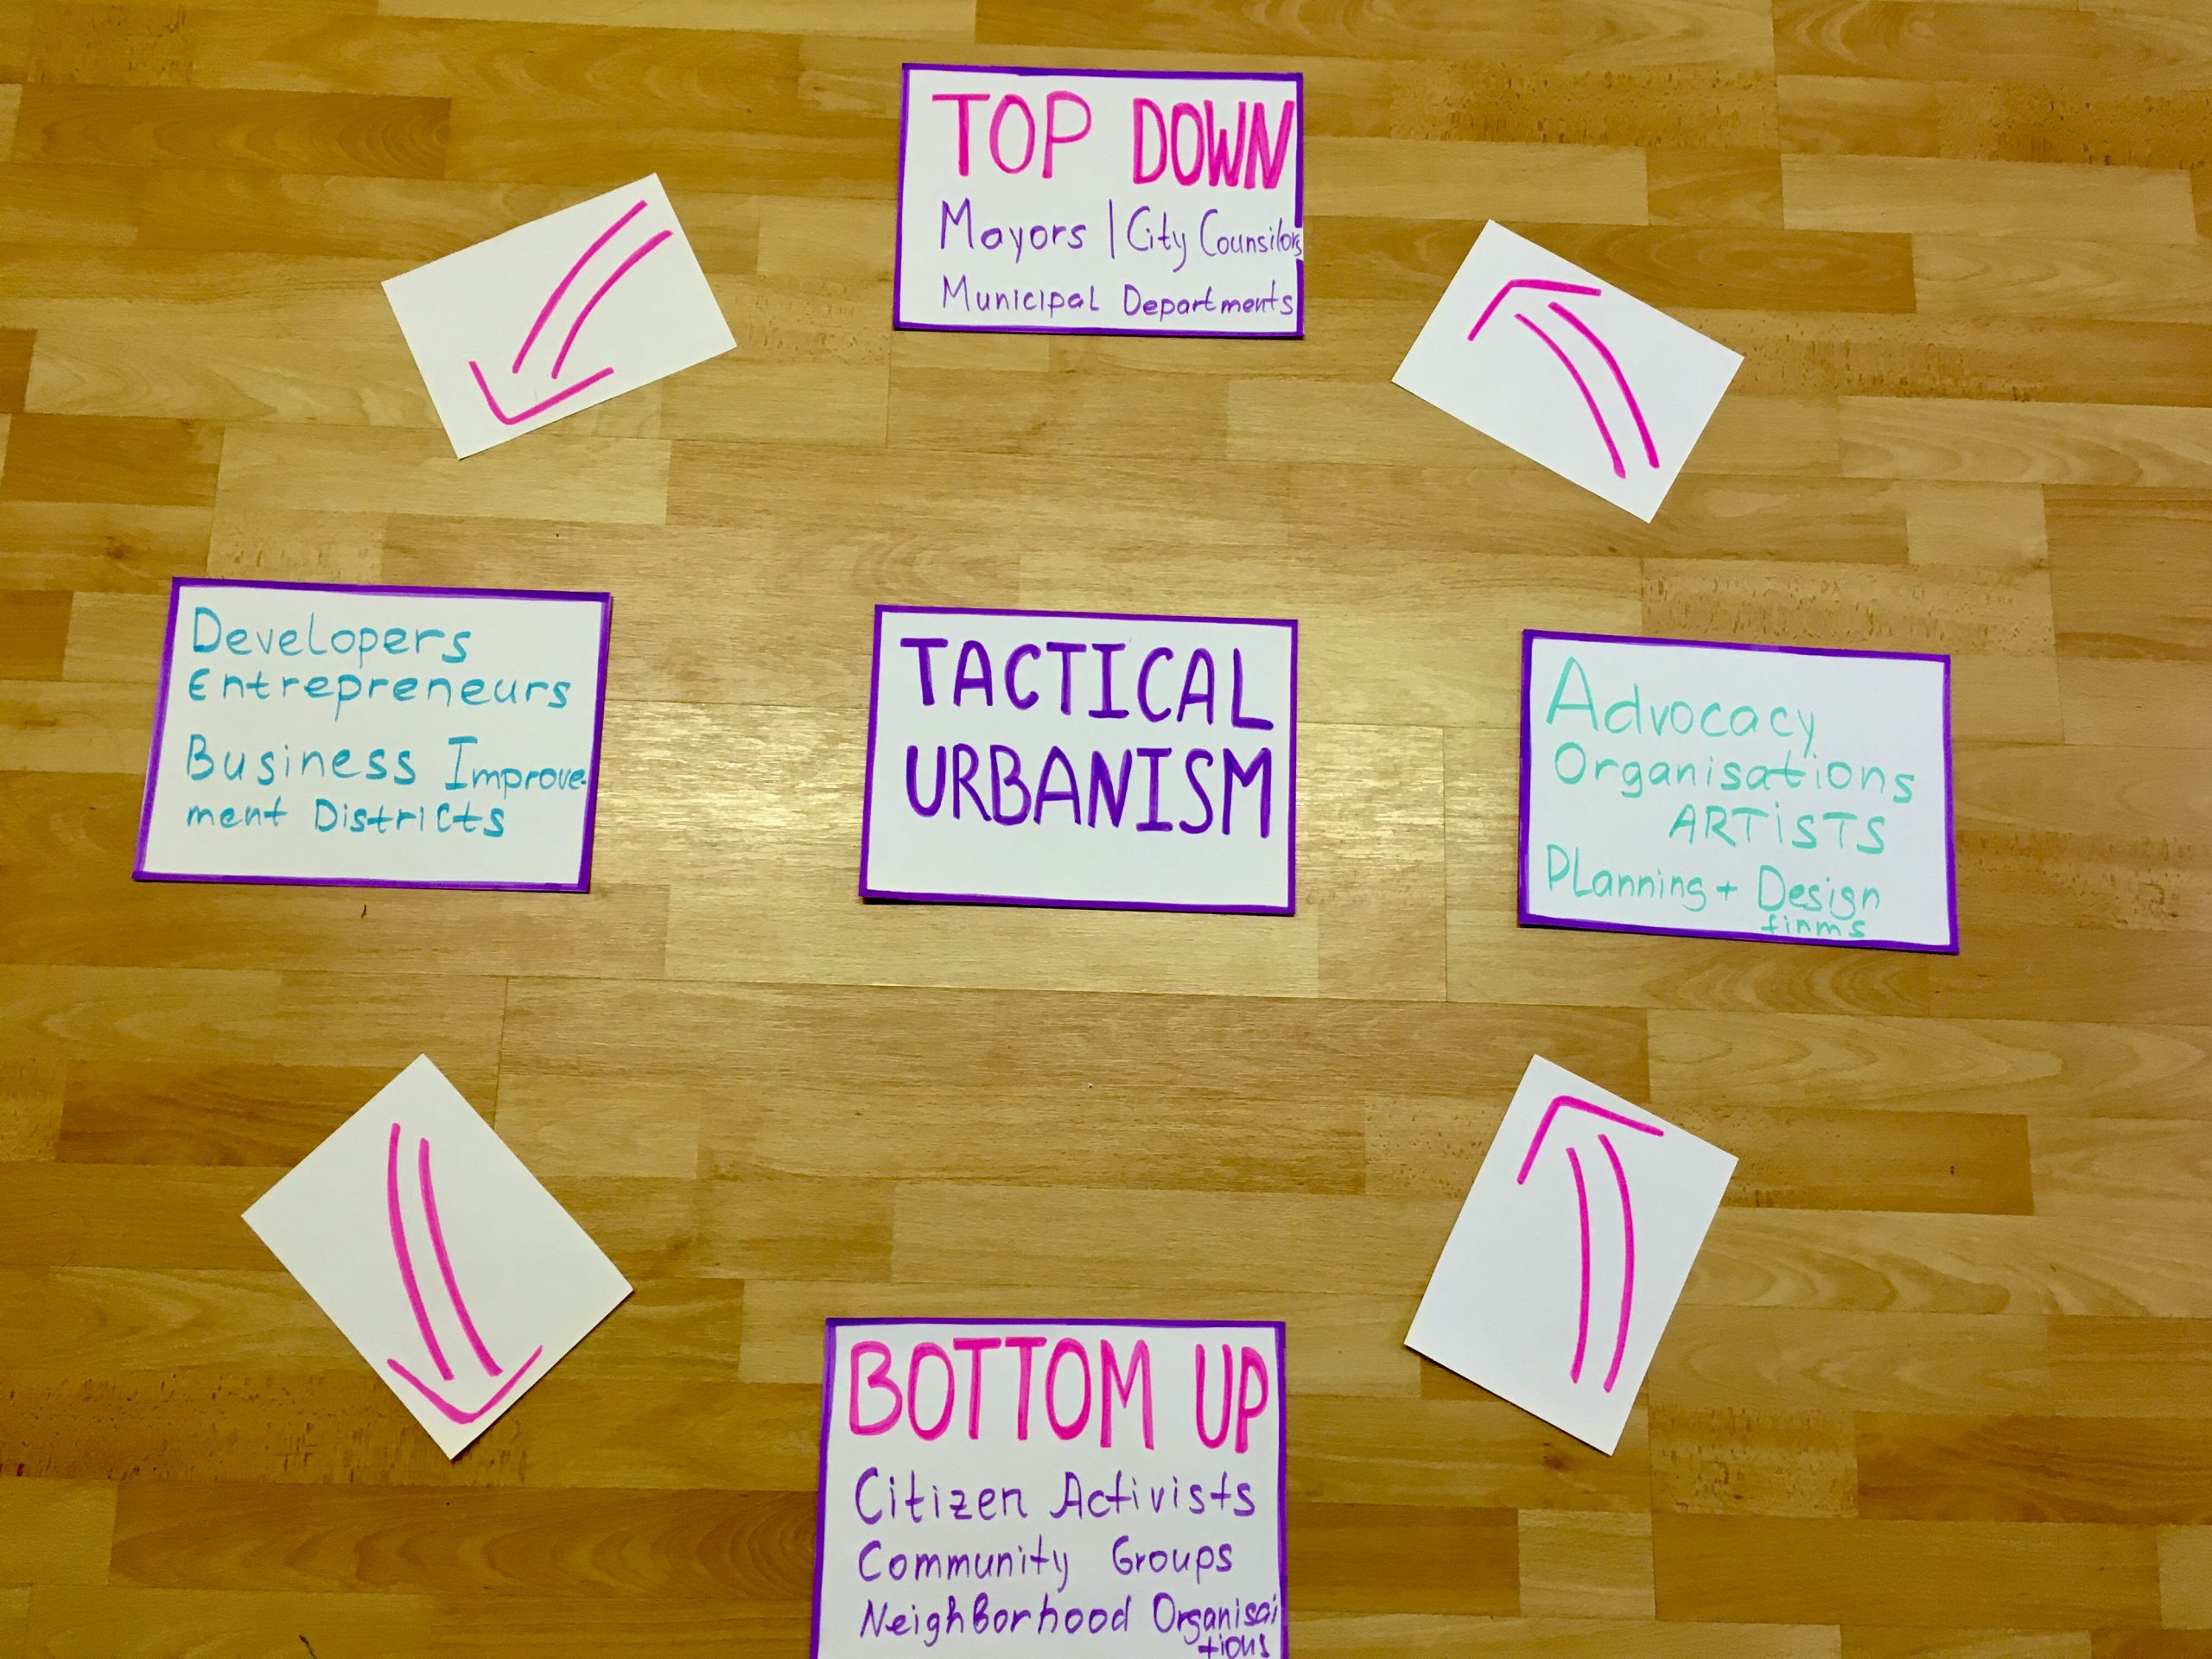 TOP DOWN
Mayors | City Counsilors
Municipal Departments
Developers
Entrepreneurs
Business Improve-
ment Districts
TACTICAL
URBANISM
Advocacy
Organisations
ARTiSTS
Planning + Design
finms
BOTTOM UP
Citizen Activists
Community Groups
Neighborhood Organisai
tions